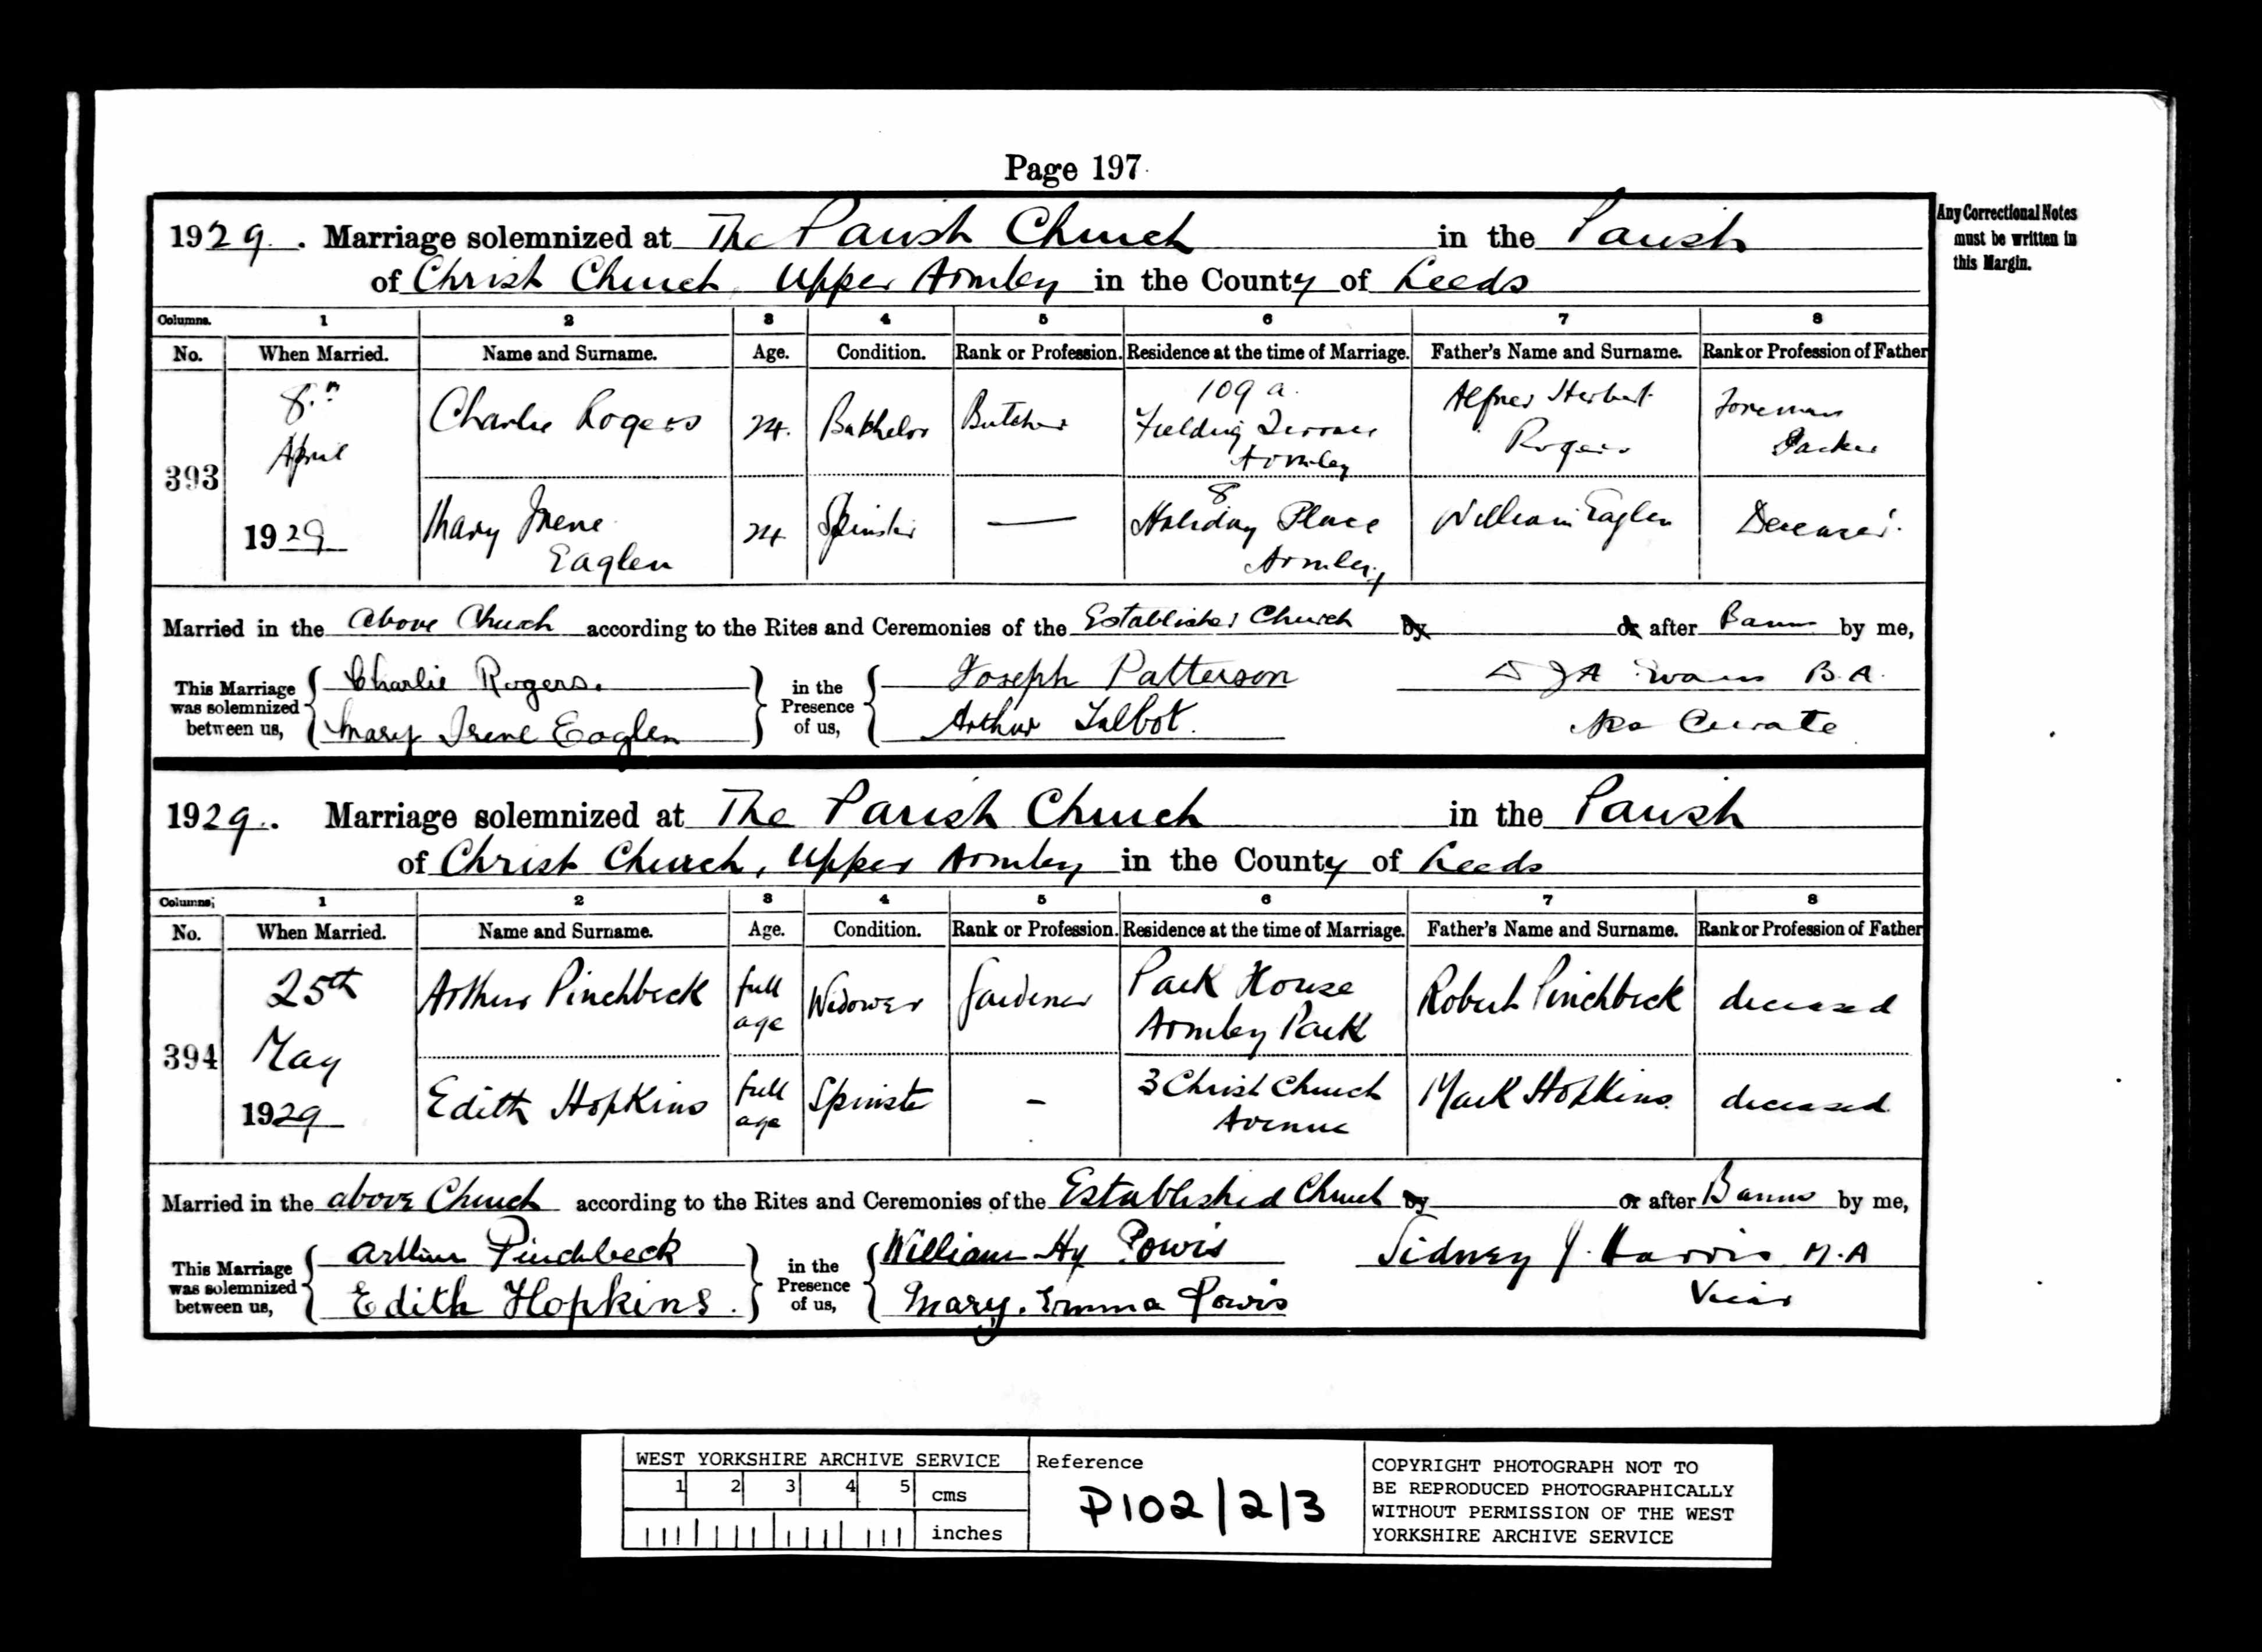 Page 197
Any Correctional Notes
must be written in
this Margin.
1929. Marriage solemnized at The Parish Church in the Parish
of Christ Church, Upper Armley in the County of Leeds
Columns. 1 2 3 4 5 6 7 8
No. When Married. Name and Surname. Age. Condition. Rank or Profession. Residence at the time of Marriage. Father's Name and Surname. Rank or Profession of Father
393 8th April 1929
Charlie Rogers 24. Bachelor Butcher 109 a. Fielding Terrace Armley Herbert Rogers Foreman Packer
Mary Irene Eaglen 24 Spinster — 8 Holiday Place Armley William Eaglen Deceased.
Married in the above Church according to the Rites and Ceremonies of the Established Church by or after Banns by me,
This Marriage was solemnized between us, Charlie Rogers. Mary Irene Eaglen
in the Presence of us, Joseph Patterson Arthur Talbot.
Evans B.A.
Curate
1929. Marriage solemnized at The Parish Church in the Parish
of Christ Church, Upper Armley in the County of Leeds
Columns; 1 2 3 4 5 6 7 8
No. When Married. Name and Surname. Age. Condition. Rank or Profession. Residence at the time of Marriage. Father's Name and Surname. Rank or Profession of Father
394 25th May 1929
Arthur Pinchbeck full age Widower Gardener Park House Armley Park Robert Pinchbeck deceased
Edith Hopkins full age Spinster - 3 Christ Church Avenue Mark Hopkins. deceased
Married in the above Church according to the Rites and Ceremonies of the Established Church by or after Banns by me,
This Marriage was solemnized between us, Arthur Pinchbeck Edith Hopkins.
in the Presence of us, William Hy Powis Mary. Emma Powis
Sidney J. Harris M.A
Vicar
WEST YORKSHIRE ARCHIVE SERVICE
1 2 3 4 5 cms
inches
Reference
P102/2/3
COPYRIGHT PHOTOGRAPH NOT TO
BE REPRODUCED PHOTOGRAPHICALLY
WITHOUT PERMISSION OF THE WEST
YORKSHIRE ARCHIVE SERVICE